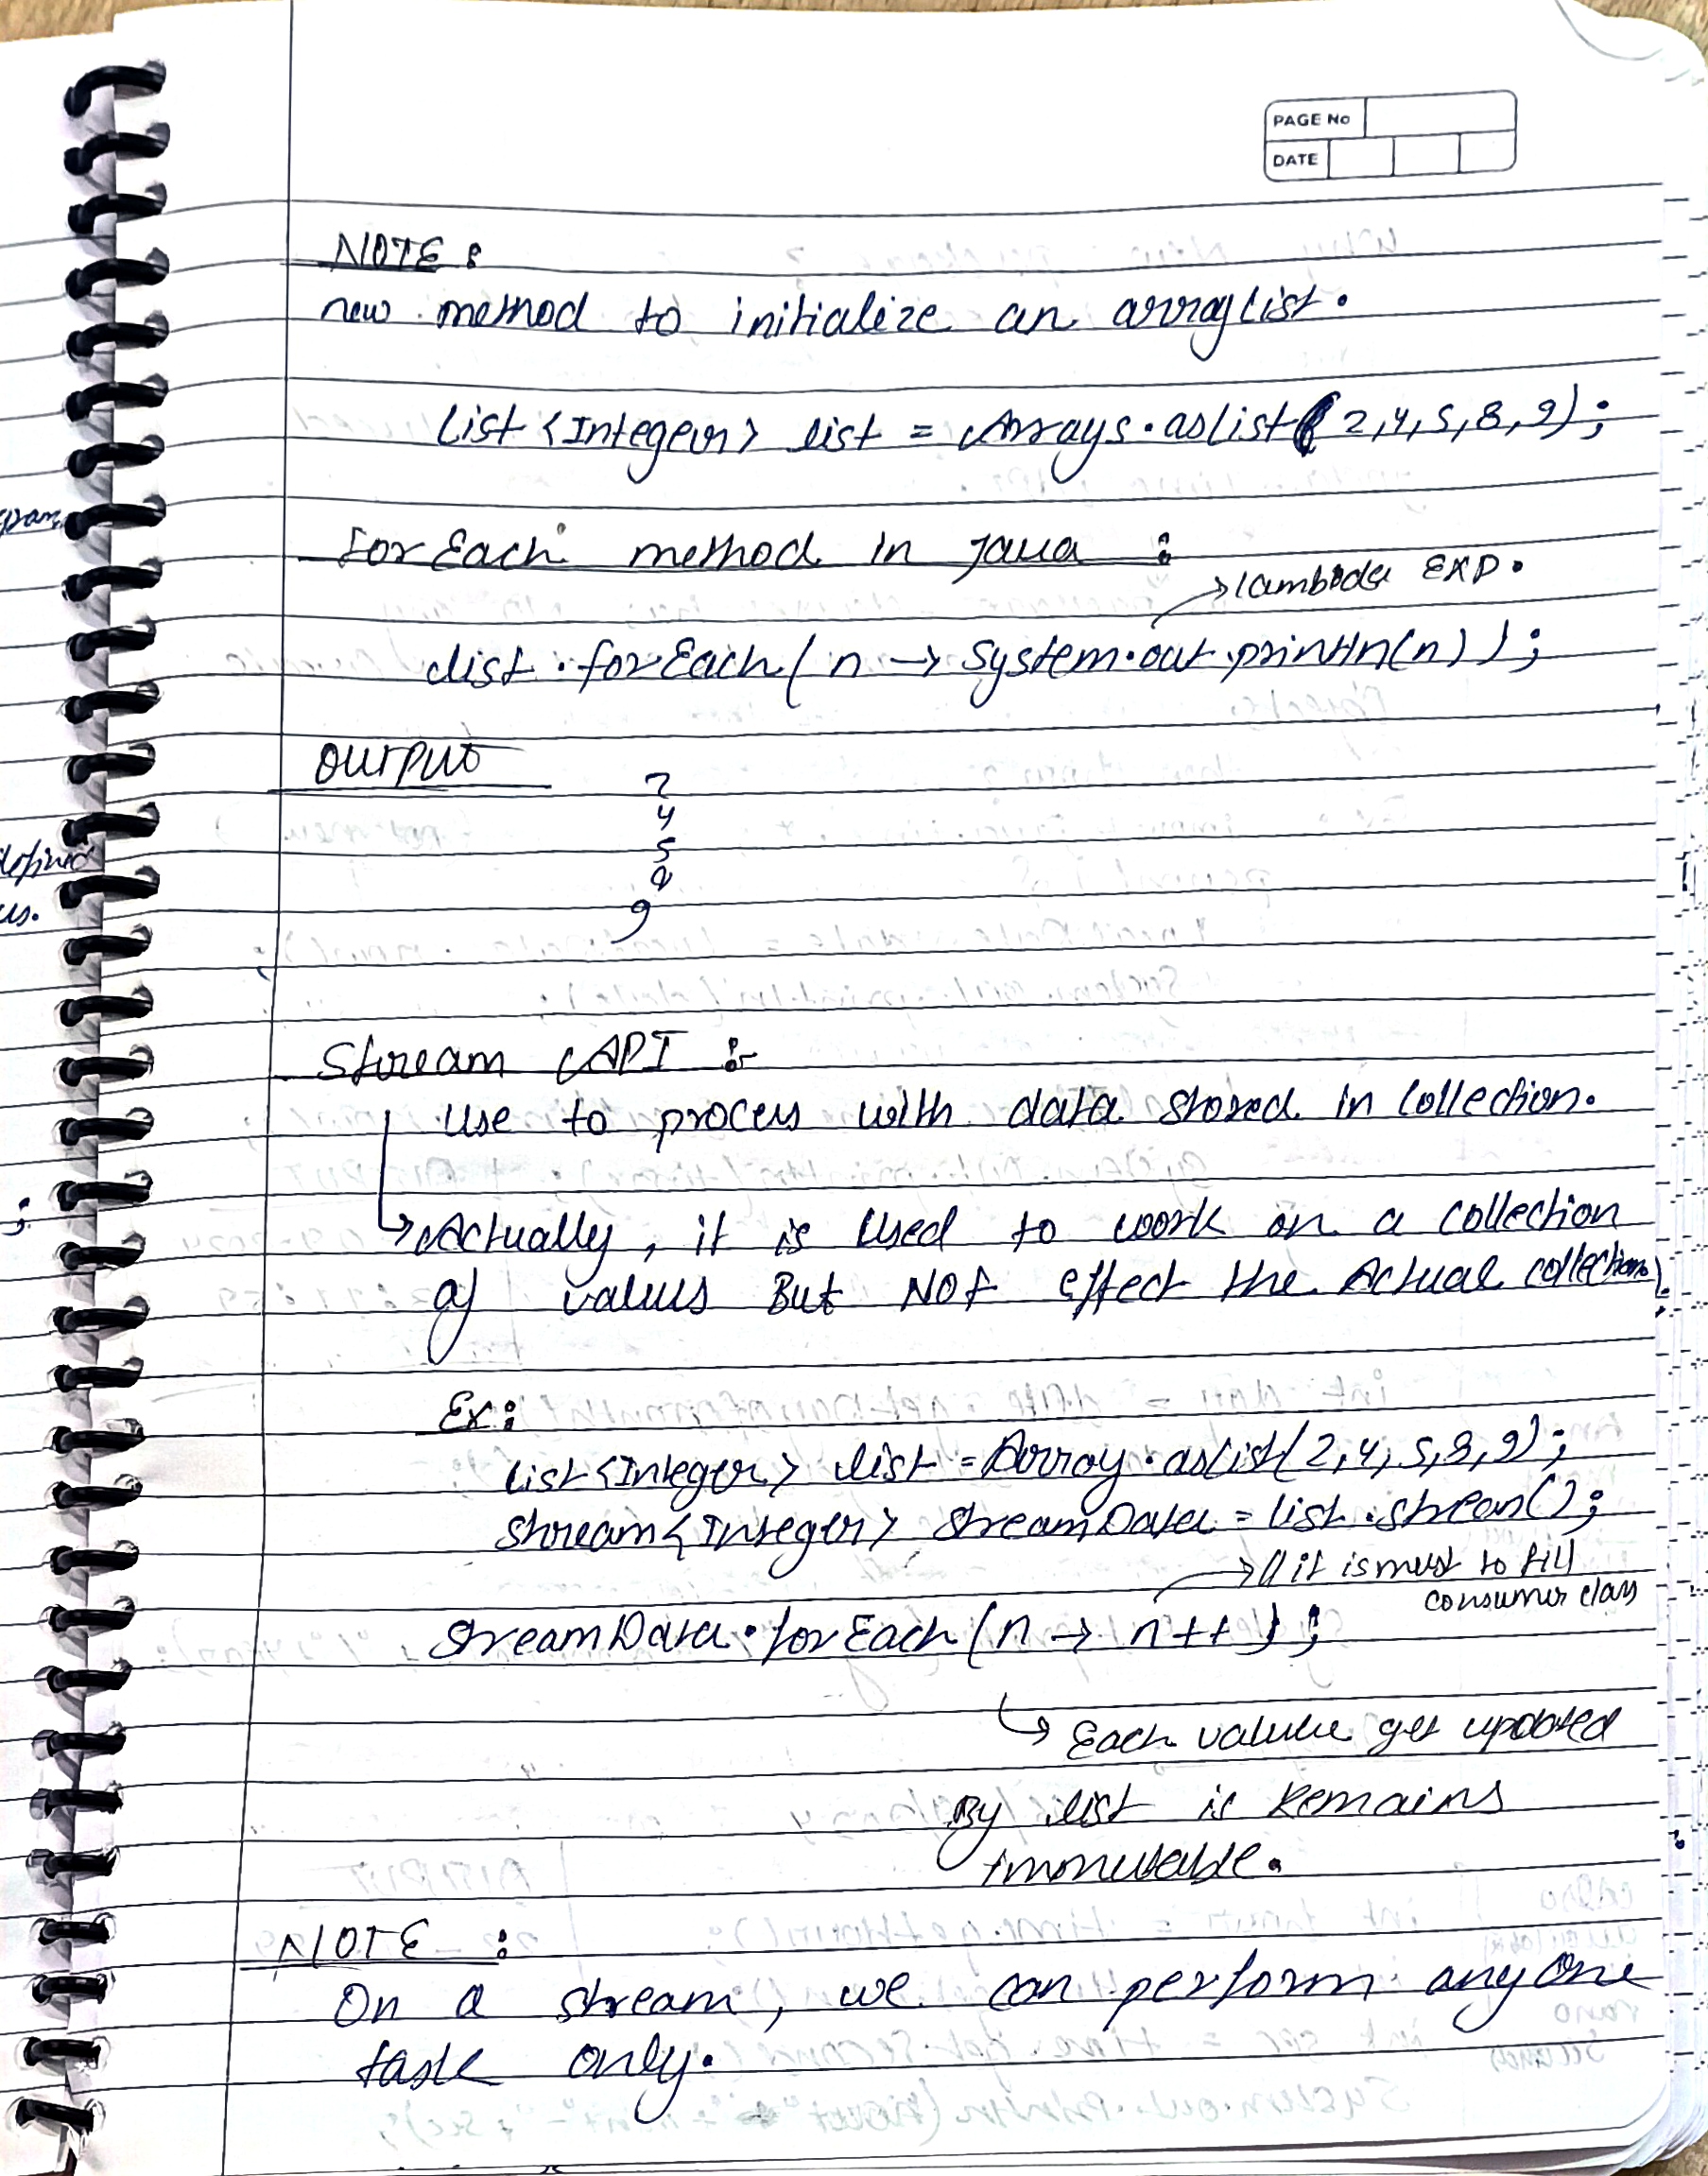 PAGE No
DATE
NOTE :
new method to initialize an arraylist.
List <Integer> list = Arrays.asList( 2,4,5,8,9);
forEach method in Java :
→ lambda EXP.
list.forEach( n → System.out.println(n));
OUTPUT
2
4
5
8
9
Stream API :-
Use to process with data stored in collection.
→ Actually, it is Used to work on a collection
of values But NOT effect the Actual collection.
Ex:
List <Integer> list = Array.asList(2,4,5,8,9);
Stream<Integer> StreamData = list.stream();
→ // it is must to fill
consumer class
StreamData.forEach(n → n++);
→ Each valule get updated
By list is Remains
immutable.
NOTE :
On a stream, we can perform any one
task only.
defined
us.
;